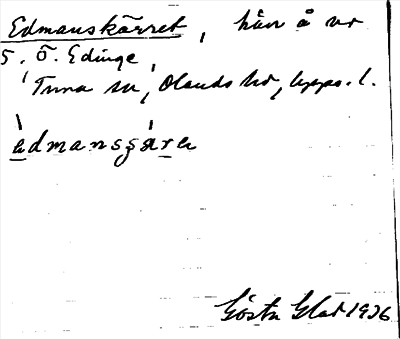 Edmanskärret, hän å vr
S. Ö. Edinge,
Tuna sn, Olands hd, Upps. l.
edmansʂära
Gösta Glad 1926